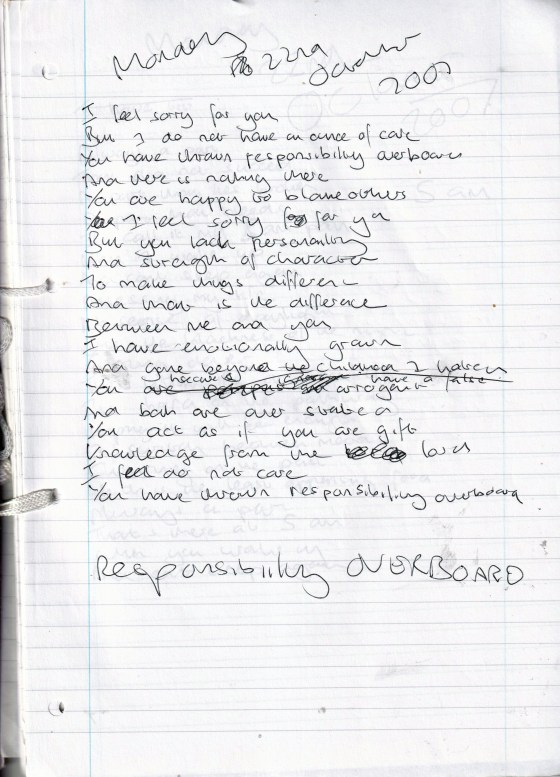 Monday 22nd October 2007
I feel sorry for you
But I do not have an ounce of care
You have thrown responsibility overboard
And there is nothing there
You are happy to blame others
I feel sorry for you
But you lack personality
And strength of character
To make things different
And that is the difference
Between me and you
I have emotionally grown
And gone beyond the childhood I hated
You arrogant have a false
And both are over stated
You act as if you are gift
Knowledge from the lord
I do not care
You have thrown responsibility overboard
Responsibility OVERBOARD